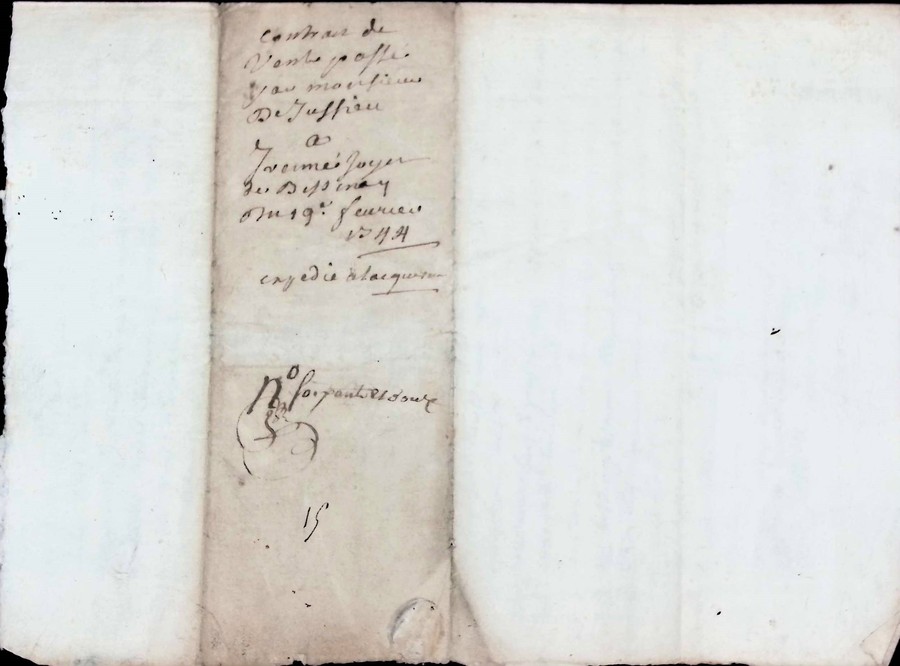 contrat de
Vente passé
par monsieur
De Jussieu
a
Joyer
de Bissinay
Du 19e fevrier
1744
expedié a lacquereur
No soixante et douze
15